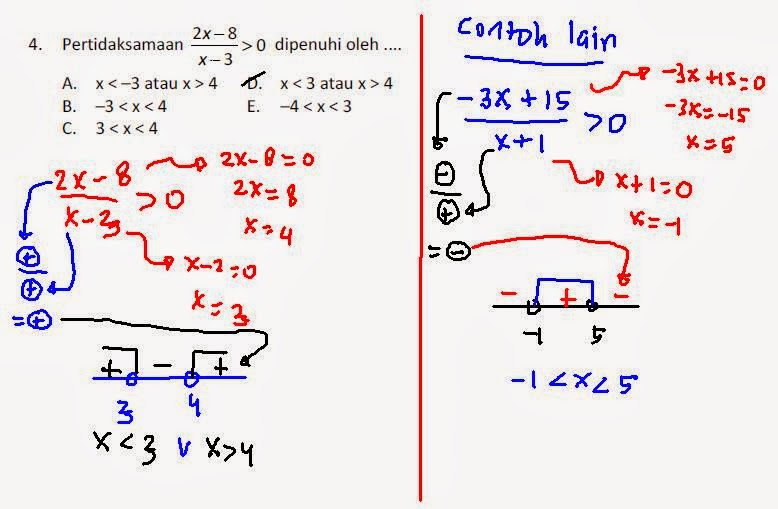 4. Pertidaksamaan (2x – 8)/(x – 3) > 0 dipenuhi oleh ....
A. x < –3 atau x > 4
D. x < 3 atau x > 4
B. –3 < x < 4
E. –4 < x < 3
C. 3 < x < 4
(2x - 8)/(x - 3) > 0
2x - 8 = 0
2x = 8
x = 4
x - 2 = 0
x = 3
+
+
= +
+ - +
3 4
x < 3 v x > 4
Contoh lain
(-3x + 15)/(x + 1) > 0
-3x + 15 = 0
-3x = -15
x = 5
x + 1 = 0
x = -1
-
+
= -
- + -
-1 5
-1 < x < 5